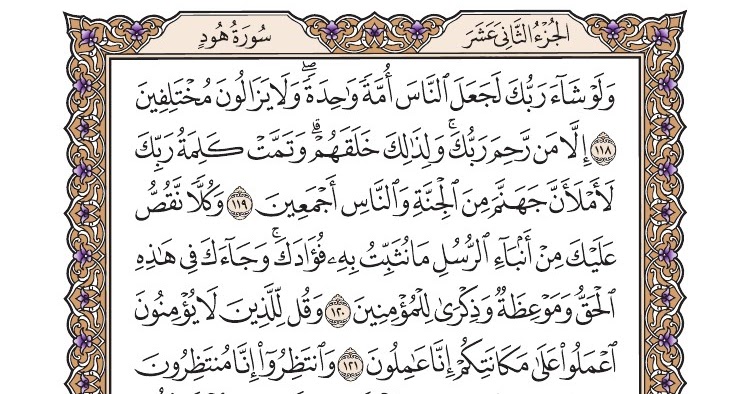 الجُزْءُ الثَّانِيَ عَشَرَ
سُورَةُ هُودٍ
وَلَوْ شَآءَ رَبُّكَ لَجَعَلَ ٱلنَّاسَ أُمَّةً وَٰحِدَةً ۖ وَلَا يَزَالُونَ مُخْتَلِفِينَ
١١٨ إِلَّا مَن رَّحِمَ رَبُّكَ ۚ وَلِذَٰلِكَ خَلَقَهُمْ ۗ وَتَمَّتْ كَلِمَةُ رَبِّكَ
لَأَمْلَأَنَّ جَهَنَّمَ مِنَ ٱلْجِنَّةِ وَٱلنَّاسِ أَجْمَعِينَ ١١٩ وَكُلًّا نَّقُصُّ
عَلَيْكَ مِنْ أَنۢبَآءِ ٱلرُّسُلِ مَا نُثَبِّتُ بِهِۦ فُؤَادَكَ ۚ وَجَآءَكَ فِى هَٰذِهِ
ٱلْحَقُّ وَمَوْعِظَةٌ وَذِكْرَىٰ لِلْمُؤْمِنِينَ ١٢٠ وَقُل لِّلَّذِينَ لَا يُؤْمِنُونَ
ٱعْمَلُوا۟ عَلَىٰ مَكَانَتِكُمْ إِنَّا عَٰمِلُونَ ١٢١ وَٱنتَظِرُوٓا۟ إِنَّا مُنتَظِرُونَ